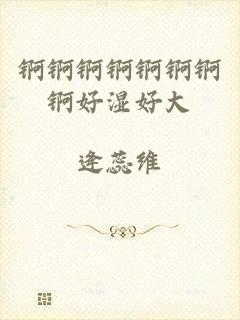 锕锕锕锕锕锕锕
锕好湿好大
逄蕊维